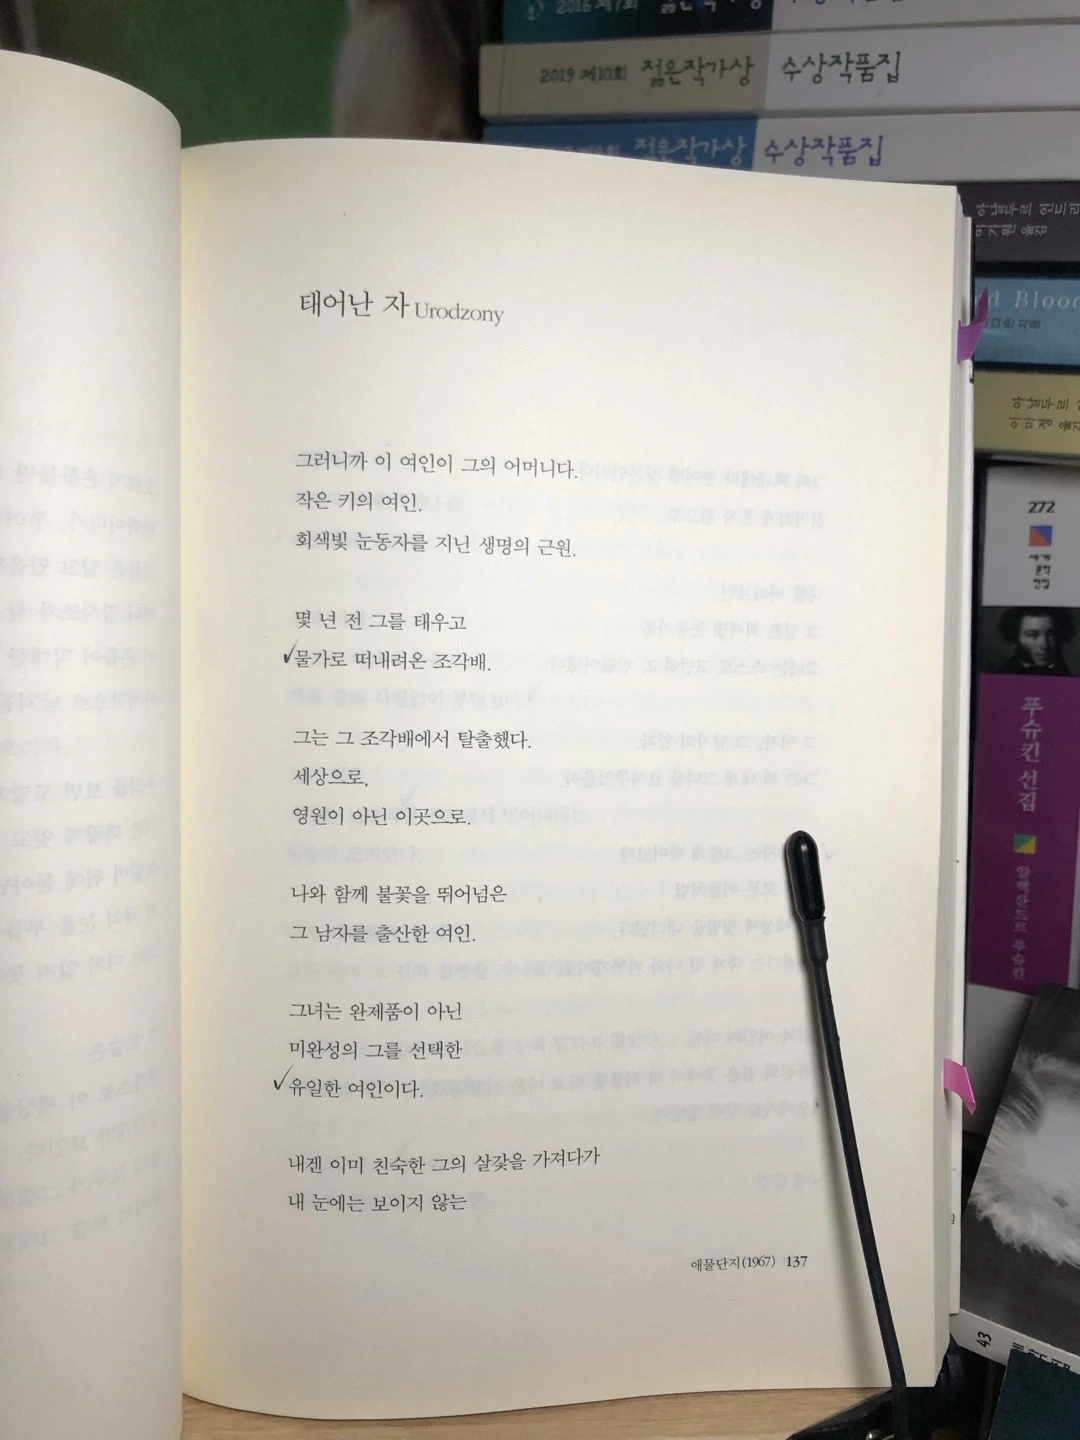 2016 제7회 젊은작가상 수상작품집
2019 제10회 젊은작가상 수상작품집
젊은작가상 수상작품집
아날두르 인드리
이기원 옮김
Blood
아날두르
이미정 옮김
272
세계
문학
전집
푸슈킨 선집
알렉산드르 푸슈킨
43
태어난 자 Urodzony
그러니까 이 여인이 그의 어머니다.
작은 키의 여인.
회색빛 눈동자를 지닌 생명의 근원.
몇 년 전 그를 태우고
물가로 떠내려온 조각배.
그는 그 조각배에서 탈출했다.
세상으로,
영원이 아닌 이곳으로.
나와 함께 불꽃을 뛰어넘은
그 남자를 출산한 여인.
그녀는 완제품이 아닌
미완성의 그를 선택한
유일한 여인이다.
내겐 이미 친숙한 그의 살갗을 가져다가
내 눈에는 보이지 않는
애물단지(1967) 137